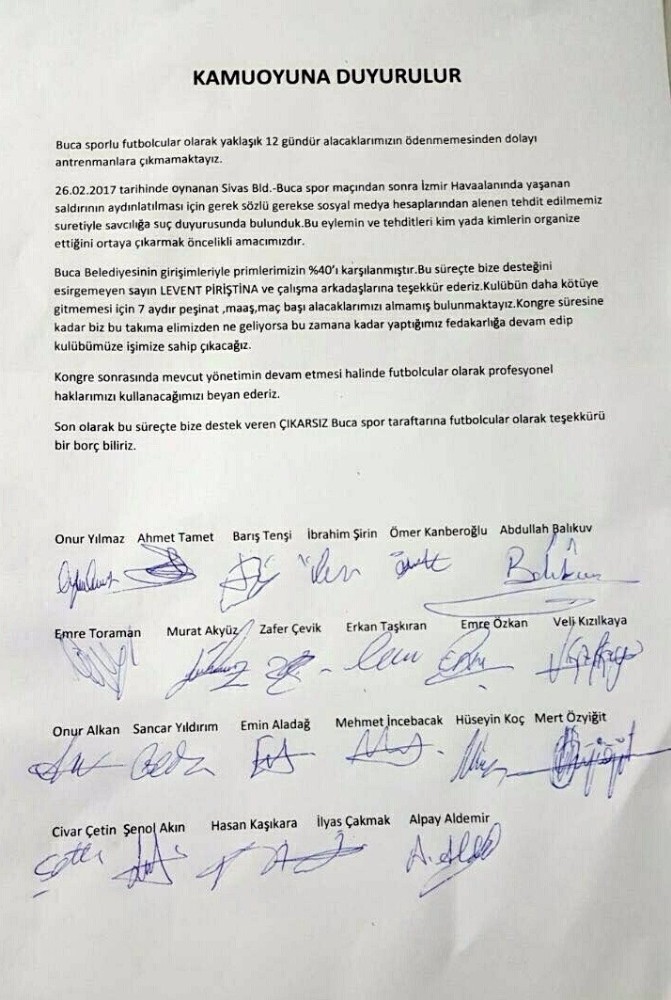 KAMUOYUNA DUYURULUR
Buca sporlu futbolcular olarak yaklaşık 12 gündür alacaklarımızın ödenmemesinden dolayı
antrenmanlara çıkmamaktayız.
26.02.2017 tarihinde oynanan Sivas Bld.-Buca spor maçından sonra İzmir Havaalanında yaşanan
saldırının aydınlatılması için gerek sözlü gerekse sosyal medya hesaplarından alenen tehdit edilmemiz
suretiyle savcılığa suç duyurusunda bulunduk.Bu eylemin ve tehditleri kim yada kimlerin organize
ettiğini ortaya çıkarmak öncelikli amacımızdır.
Buca Belediyesinin girişimleriyle primlerimizin %40'ı karşılanmıştır.Bu süreçte bize desteğini
esirgemeyen sayın LEVENT PİRİŞTİNA ve çalışma arkadaşlarına teşekkür ederiz.Kulübün daha kötüye
gitmemesi için 7 aydır peşinat ,maaş,maç başı alacaklarımızı almamış bulunmaktayız.Kongre süresine
kadar biz bu takıma elimizden ne geliyorsa bu zamana kadar yaptığımız fedakarlığa devam edip
kulübümüze işimize sahip çıkacağız.
Kongre sonrasında mevcut yönetimin devam etmesi halinde futbolcular olarak profesyonel
haklarımızı kullanacağımızı beyan ederiz.
Son olarak bu süreçte bize destek veren ÇIKARSIZ Buca spor taraftarına futbolcular olarak teşekkürü
bir borç biliriz.
Onur Yılmaz Ahmet Tamet Barış Tenşi İbrahim Şirin Ömer Kanberoğlu Abdullah Balıkuv
Emre Toraman Murat Akyüz Zafer Çevik Erkan Taşkıran Emre Özkan Veli Kızılkaya
Onur Alkan Sancar Yıldırım Emin Aladağ Mehmet İncebacak Hüseyin Koç Mert Özyiğit
Civar Çetin Şenol Akın Hasan Kaşıkara İlyas Çakmak Alpay Aldemir